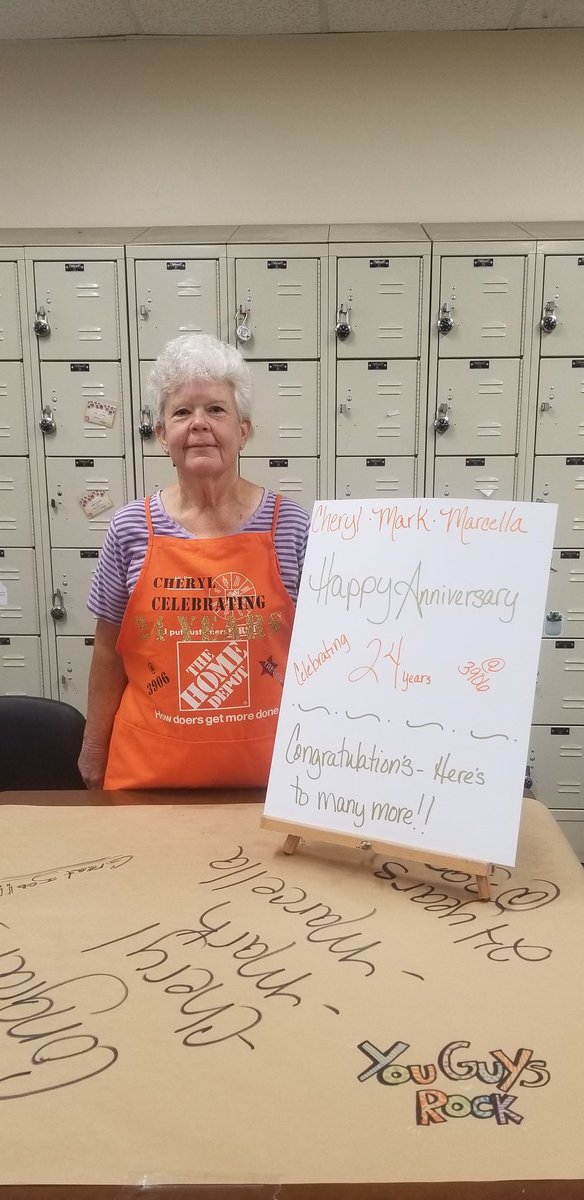 Cheryl · Mark · Marcella
Happy Anniversary
Celebrating 24 years @ 3906
Congratulation's - Here's
to many more!!
CHERYL
CELEBRATING
24 YEARS
I put customers FIRST
@
3906
THE
HOME
DEPOT
How doers get more done
Great Job!!
Cheryl
- Mark
- Marcella
24 years @
You Guys
Rock